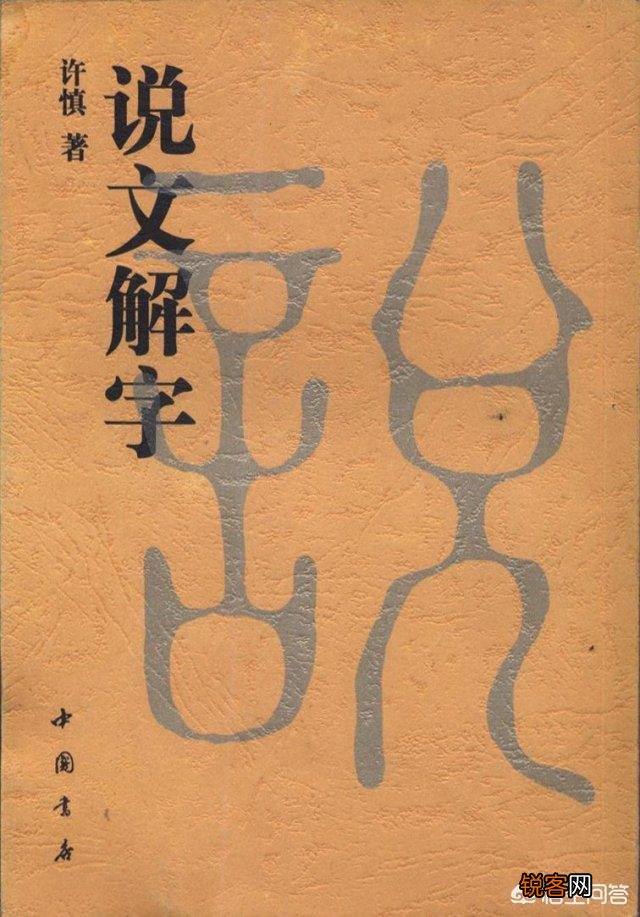 说文解字
许慎 著
中國書店
锐客网
问答